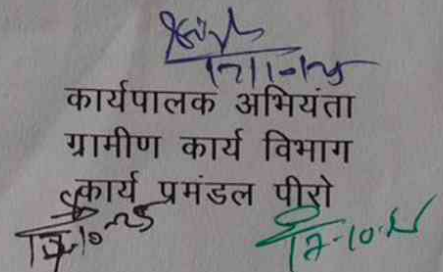 17/10/25
कार्यपालक अभियंता
ग्रामीण कार्य विभाग
कार्य प्रमंडल पीरो
17-10-25
17-10-25